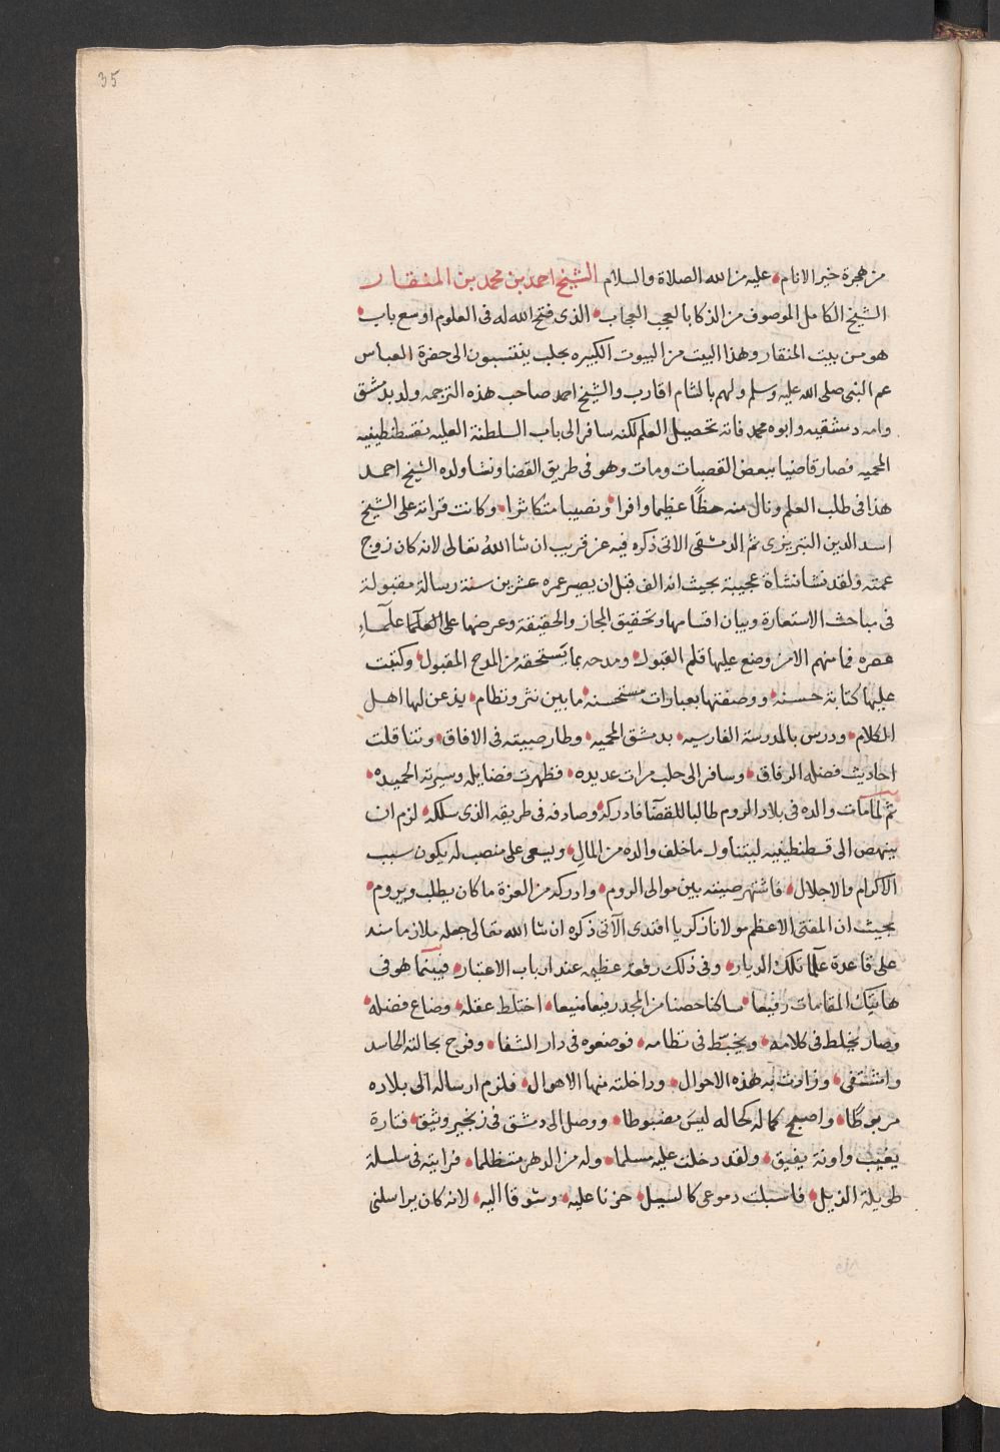 35
من هجرة خير الانام، عليه من الله الصلاة والسلام الشيخ احمد بن محمد بن المنقار
الشيخ الكامل الموصوف من الذكا بالعجب العجاب، الذى فتح الله له فى العلوم اوسع باب،
هو من بيت المنقار وهذا البيت من البيوت الكبيره بحلب ينتسبون الى حضرة العباس
عم النبى صلى الله عليه وسلم ولهم بالشام اقارب والشيخ احمد صاحب هذه الترجمه ولد بدمشق
وامه دمشقيه وابوه محمد فاته تحصيل العلم لكنه سافر الى باب السلطنة العليه بقسطنطينيه
المحميه فصار قاضيا ببعض القصبات ومات وهو فى طريق القضا ونشا ولده الشيخ احمد
هذا فى طلب العلم ونال منه حظًا عظيما وافرا، ونصيبا متكاثرا، وكانت قراته على الشيخ
اسد الدين التبريزى ثم الدمشقى الاتى ذكره فيه عن قريب ان شا الله تعالى لانه كان زوج
عمته ولقد نشا نشاة عجيبة بحيث انه الف قبل ان يصير عمره عشرين سنة رسالة مقبولة
فى مباحث الاستعارة وبيان اقسامها وتحقيق المجاز والحقيقة وعرضها على العلما علمآء
عصره فما منهم الا من وضع عليها قلم القبول، ومدحه بما يستحقه من المدح المقبول، وكتبت
عليها كتابة حسنه، ووصفتها بعبارات مستحسنه، ما بين نثر ونظام، يذعن لها اهل
الكلام، ودرس بالمدرسة الفارسيه، بدمشق المحميه، وطار صيته فى الافاق، وتناقلت
احاديث فضله الرفاق، وسافر الى حلب مرات عديده، فظهرت فضايله وسيرته الحميده،
ثم لما مات والده فى بلاد الروم طالبا للقضآ فادركه، وصادفه فى طريقه الذى سلكه، لزم ان
ينهض الى قسطنطينيه ليتناول ما خلف والده من المال، ويسعى على منصب له يكون سبب
الاكرام والاجلال، فاشتهر صيته بين موالى الروم، وادركه من العزة ما كان يطلب ويروم،
بحيث ان المفتى الاعظم مولانا زكريا افندى الآتى ذكره ان شا الله تعالى جعله ملازما منه
على قاعدة علما تلك الديار، وفى ذلك رفعة عظيمه عند ارباب الاعتبار، فبينما هو فى
هاتيك المقامات رفيعا، ساكنا حصنا من المجد رفيعا منيعا، اختلط عقله، وضاع فضله،
وصار يخلط فى كلامه، ويخبط فى نظامه، فوضعوه فى دار الشفا، وفرح بحالته الحاسد
واشتفى، وزادت به هذه الاحوال، وداخلته منها الاهوال، فلزم ارساله الى بلاده
مربوطًا، واصبح كماله كحاله ليس مضبوطا، ووصل الى دمشق فى زنجير وثيق، فتارة
يغيب واونة يفيق، ولقد دخلت عليه مسلما، وله من الدهر متظلما، فرايته فى سلسلة
طويلة الذيل، فاسبلت دموعى كالسيل، حزنا عليه، وشوقا اليه، لانه كان يراسلنى